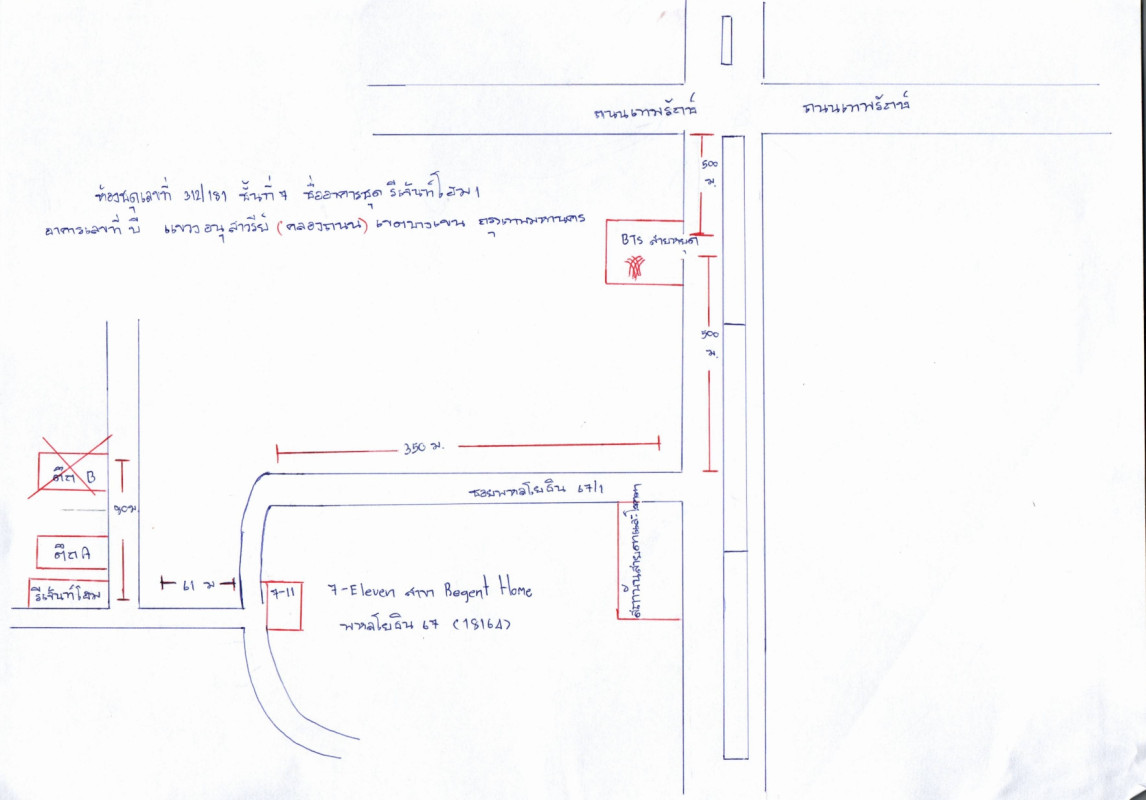 ถนนเทพรักษ์
ถนนเทพรักษ์
500
ม.
ห้องชุดเลขที่ 312/181 ชั้นที่ 7 ชื่ออาคารชุด รีเจ้นท์โฮม 1
อาคารเลขที่ บี แขวง อนุสาวรีย์ (คลองถนน) เขตบางเขน กรุงเทพมหานคร
BTS สายหยุด
500
ม.
350 ม.
ตึก B
ซอยพหลโยธิน 67/1
90 ม.
ตึก A
61 ม
รีเจ้นท์โฮม
7-11
7-Eleven สาขา Regent Home
พหลโยธิน 67 (18164)